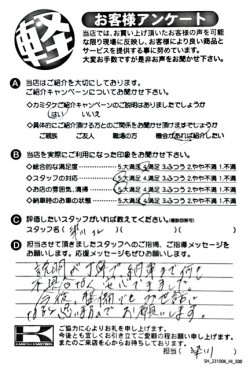 軽
お客様アンケート
当店では、お買い上げ頂いたお客様の声を可能
な限り現場に反映し、お客様により良い商品と
サービスを提供する事に努めています。
大変お手数ですが是非お声をお聞かせ下さい。
A 当店はご紹介を大切にしております。
ご紹介キャンペーンについてお聞かせ下さい。
◇カミタケご紹介キャンペーンのご説明はありましたでしょうか
はい いいえ
◇具体的にご紹介頂ける方との関係をお聞かせ頂けますでしょうか
ご親族 ご友人 職場の方 機会があれば紹介したい
B 当店を実際にご利用になった印象をお聞かせ下さい。
◇総合的な満足度 5.大満足 4.満足 3.ふつう 2.やや不満 1.不満
◇スタッフの対応 5.大満足 4.満足 3.ふつう 2.やや不満 1.不満
◇お店の雰囲気、清掃 5.大満足 4.満足 3.ふつう 2.やや不満 1.不満
◇納車時のお車の状態 5.大満足 4.満足 3.ふつう 2.やや不満 1.不満
C 評価したいスタッフがいれば教えてください。
スタッフ名( )( )( )
D 担当させて頂きましたスタッフへのご指摘、ご指導メッセージを
お願いします。応援メッセージもぜひお願いします。
説明が丁寧で、納車まで何も
お願いします。
ご協力に心よりお礼を申し上げます。
今後とも宜しくお引き立てご愛顧の程お願い申し上げます。
またのご来店を心からお待ちしております。
担当( )